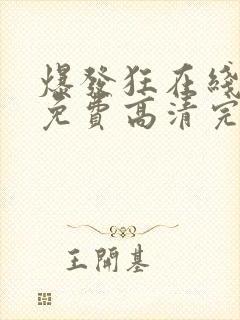 爆發狂在綫
免費高清完
王開基